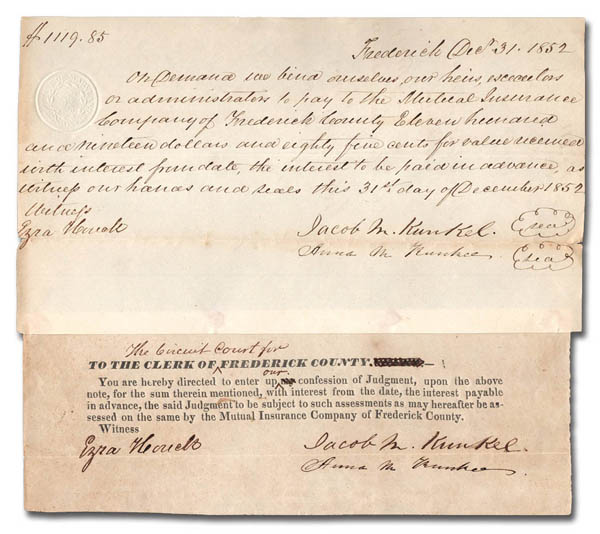 $1119.85
Frederick Decr 31. 1852
On Demand we bind ourselves, our heirs, executors
or administrators to pay to the Mutual Insurance
Company of Frederick County Eleven hundred
and nineteen dollars and eighty five cents for value received
with interest from date, the interest to be paid in advance, as
witness our hands and seals this 31st day of December 1852
Witness
Ezra Houck Jacob M. Kunkel. (seal)
Anna M Kunkel (seal)
The Circuit Court for
TO THE CLERK OF FREDERICK COUNTY.
our
You are hereby directed to enter up confession of Judgment, upon the above
note, for the sum therein mentioned, with interest from the date, the interest payable
in advance, the said Judgment to be subject to such assessments as may hereafter be as-
sessed on the same by the Mutual Insurance Company of Frederick County.
Witness
Ezra Houck Jacob M. Kunkel.
Anna M Kunkel